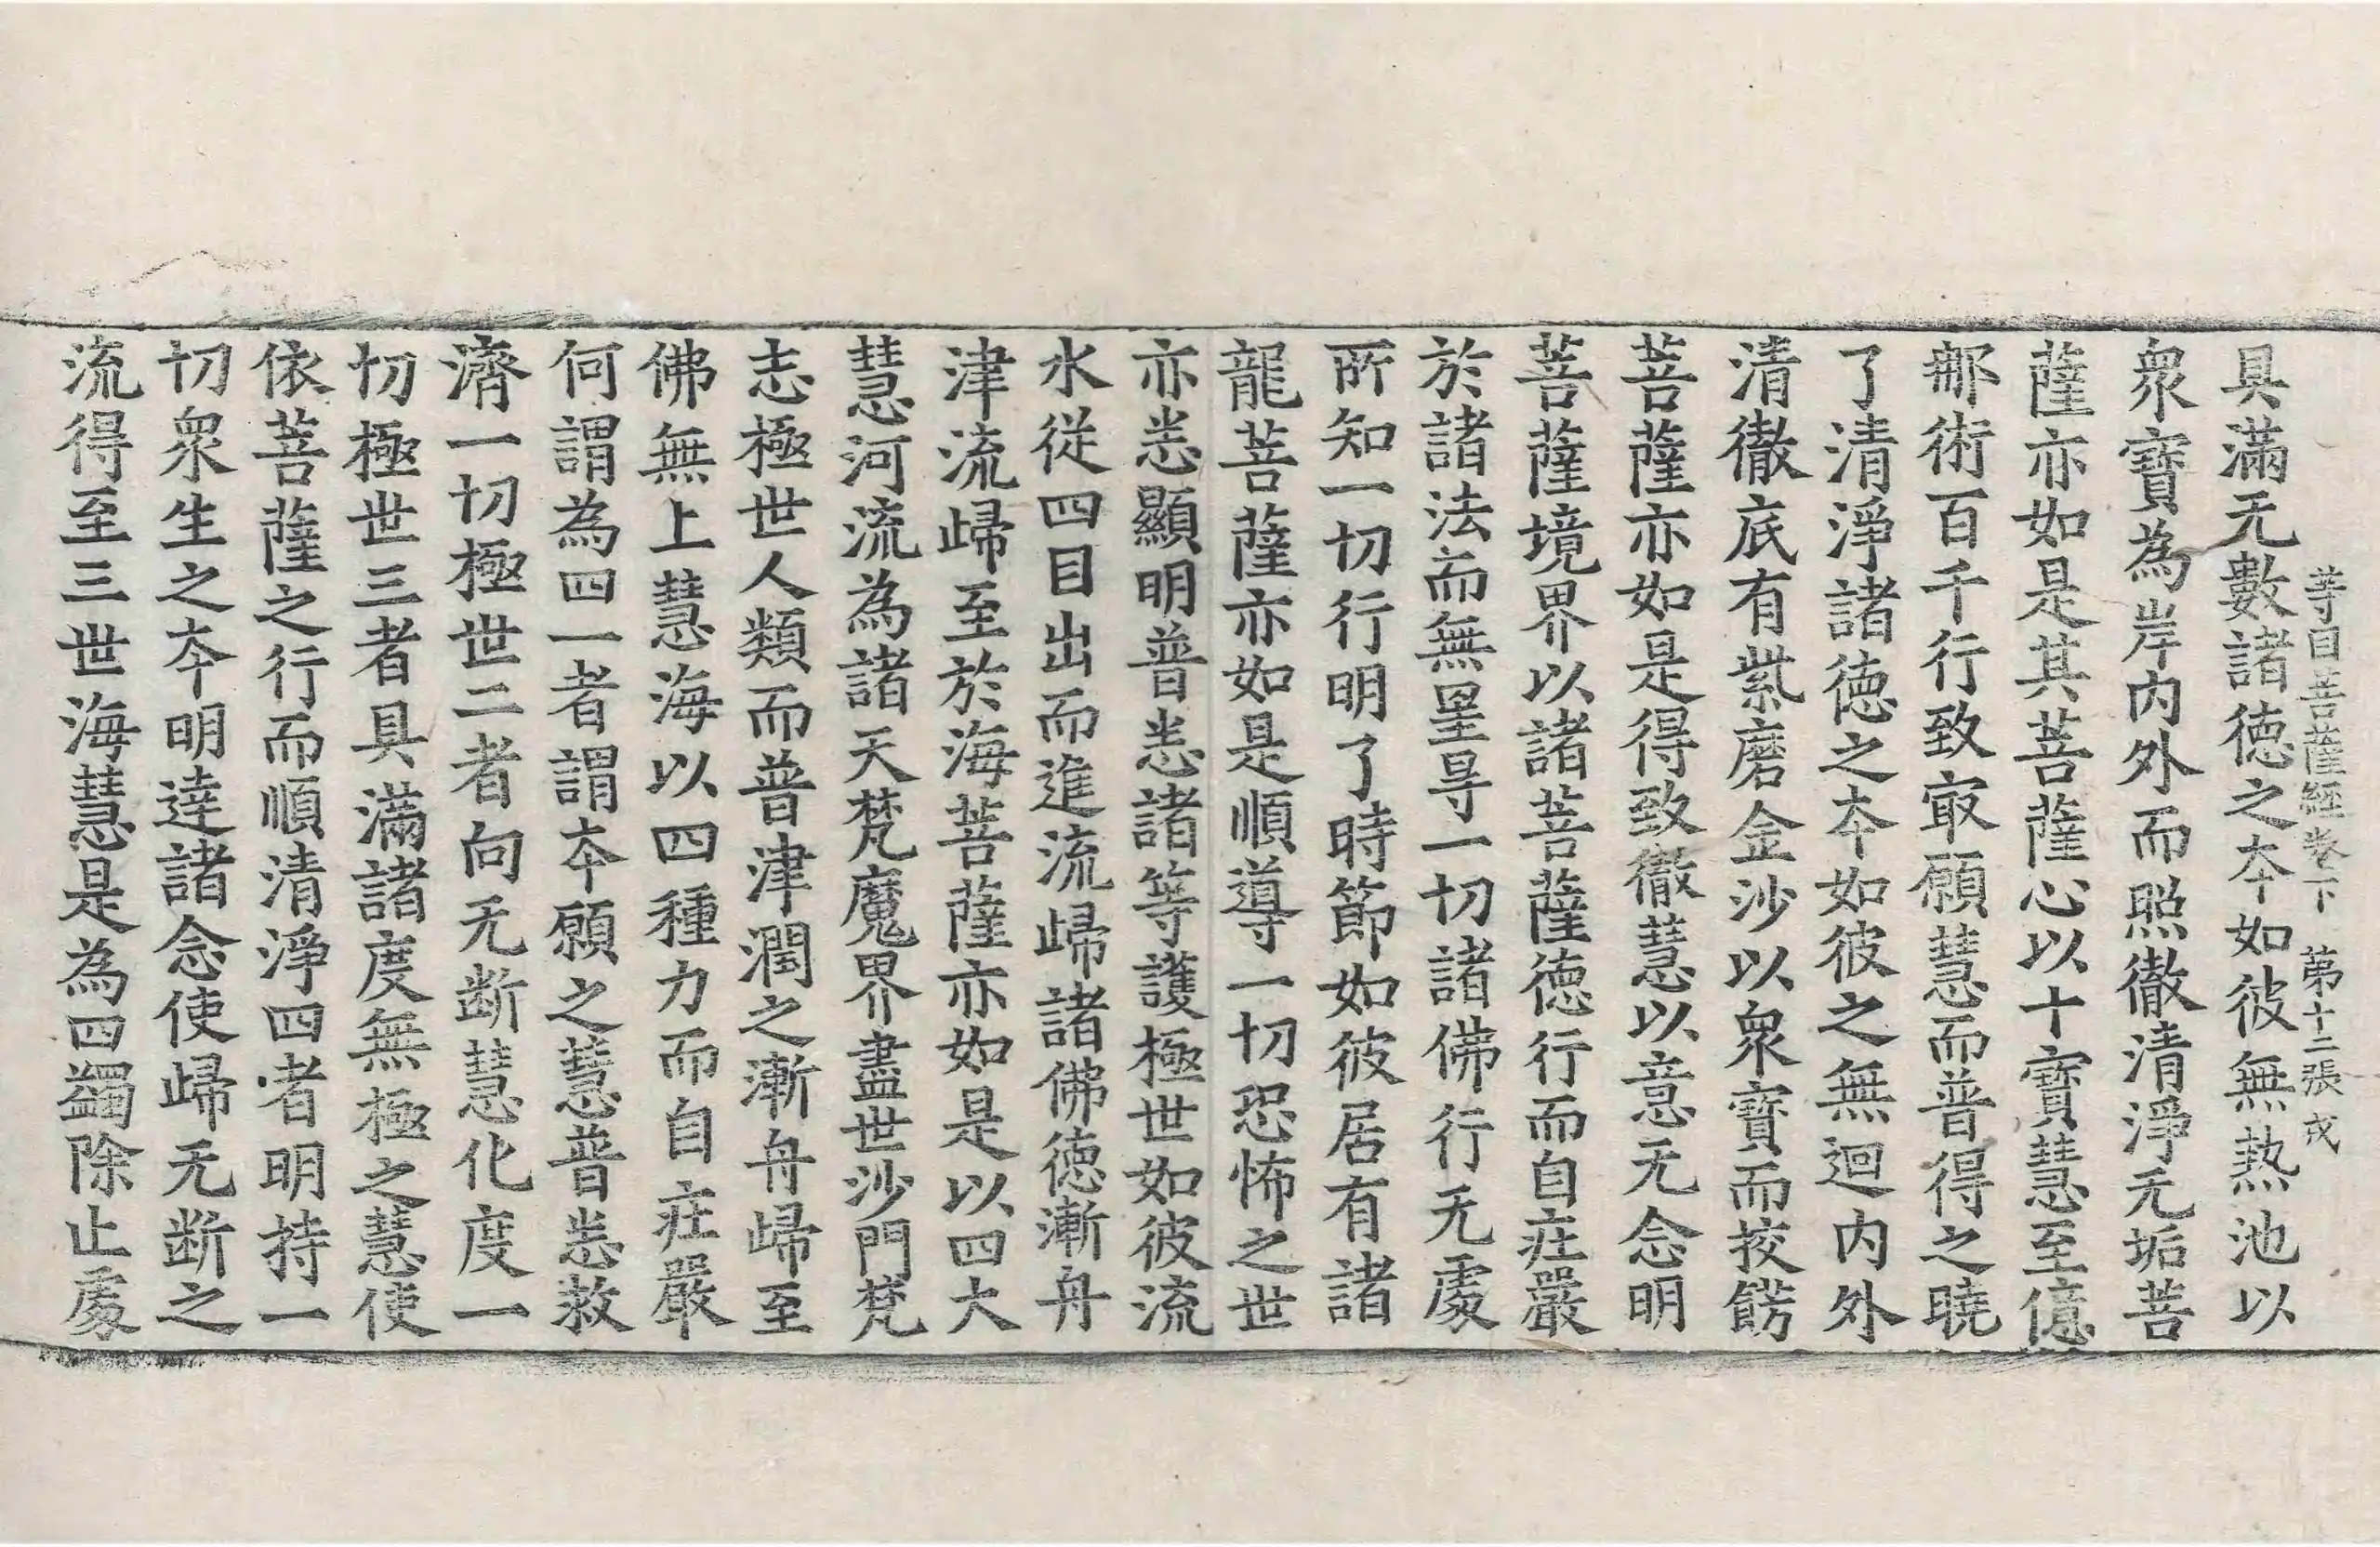 等目菩薩經卷下　第十二張　戎
具滿无數諸徳之夲如彼無熱池以
衆寶為岸内外而照徹清淨无垢菩
薩亦如是其菩薩心以十寶慧至億
那術百千行致㝡願慧而普得之曉
了清淨諸徳之夲如彼之無迴内外
清徹底有紫磨金沙以衆寶而挍餝
菩薩亦如是得致徹慧以意无念明
菩薩境界以諸菩薩徳行而自庄嚴
於諸法而無罣㝵一切諸佛行无處
所知一切行明了時節如彼居有諸
龍菩薩亦如是順導一切恐怖之世
亦悉顯明普悉諸等護極世如彼流
水從四目出而進流歸諸佛徳漸舟
津流歸至於海菩薩亦如是以四大
慧河流為諸天梵魔界盡世沙門梵
志極世人類而普津潤之漸舟歸至
佛無上慧海以四種力而自庄嚴
何謂為四一者謂夲願之慧普悉救
濟一切極世二者向无断慧化度一
切極世三者具滿諸度無極之慧使
依菩薩之行而順清淨四者明持一
切衆生之夲明逹諸念使歸无断之
流得至三世海慧是為四蠲除止處